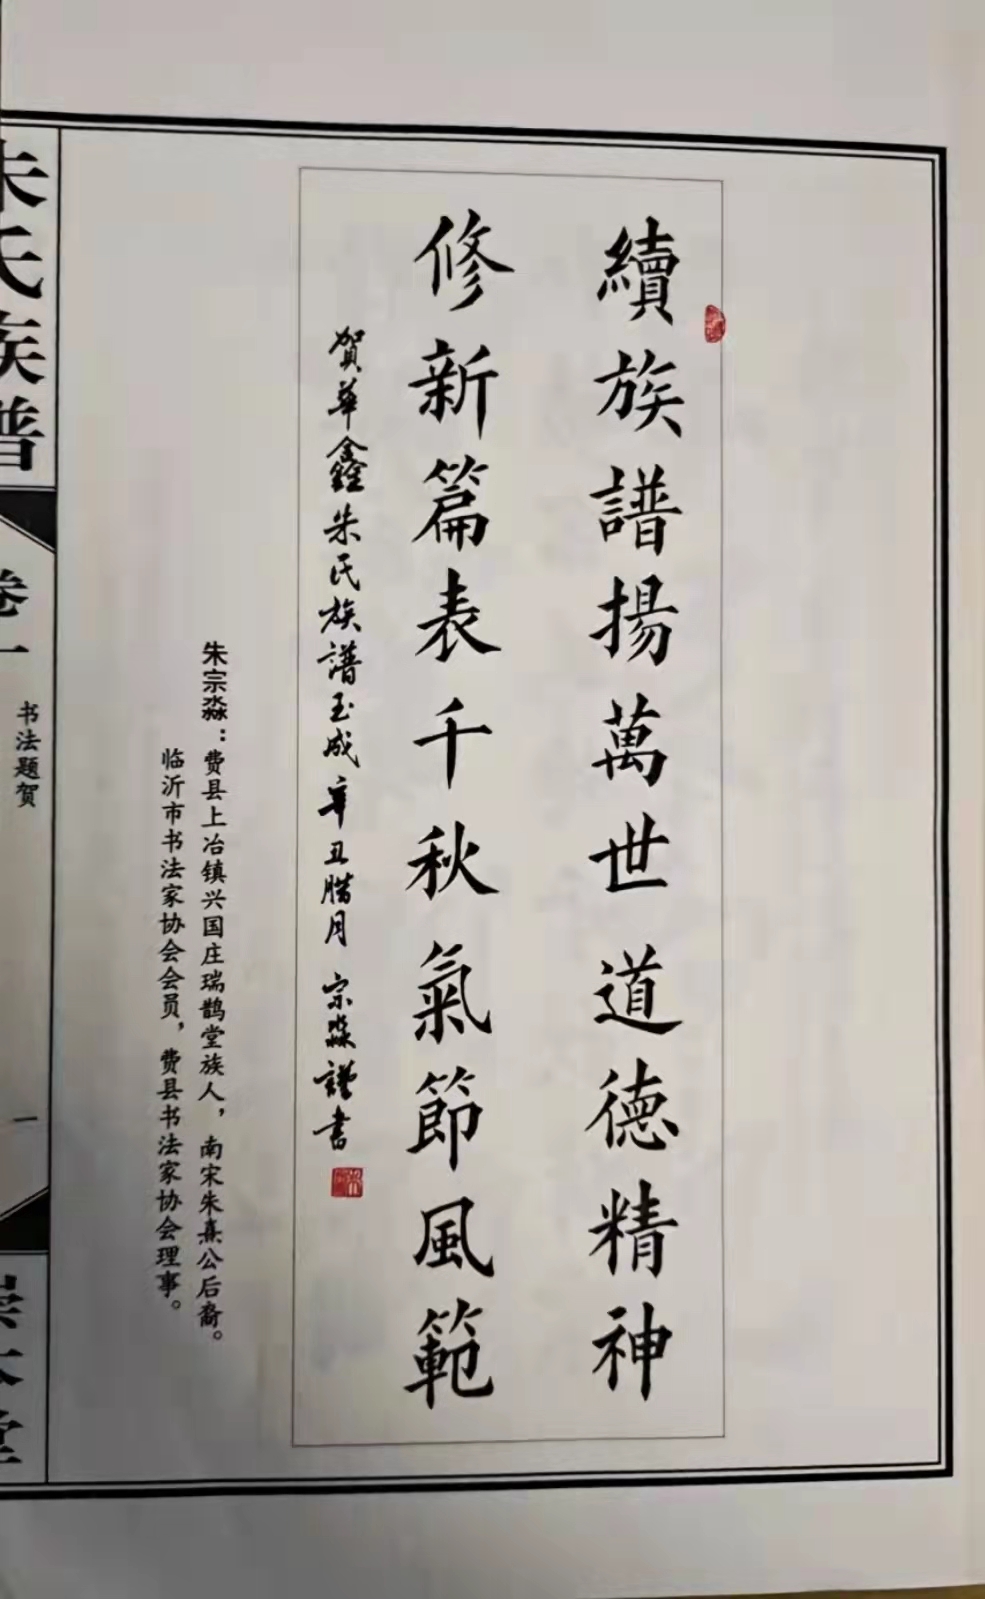 續族譜揚萬世道德精神
修新篇表千秋氣節風範
賀華鑫朱氏族譜玉成辛丑腊月宗淼謹書
朱宗淼：费县上冶镇兴国庄瑞鹊堂族人，南宋朱熹公后裔。
临沂市书法家协会会员，费县书法家协会理事。
朱氏族谱
卷一
书法题贺
一
崇本堂